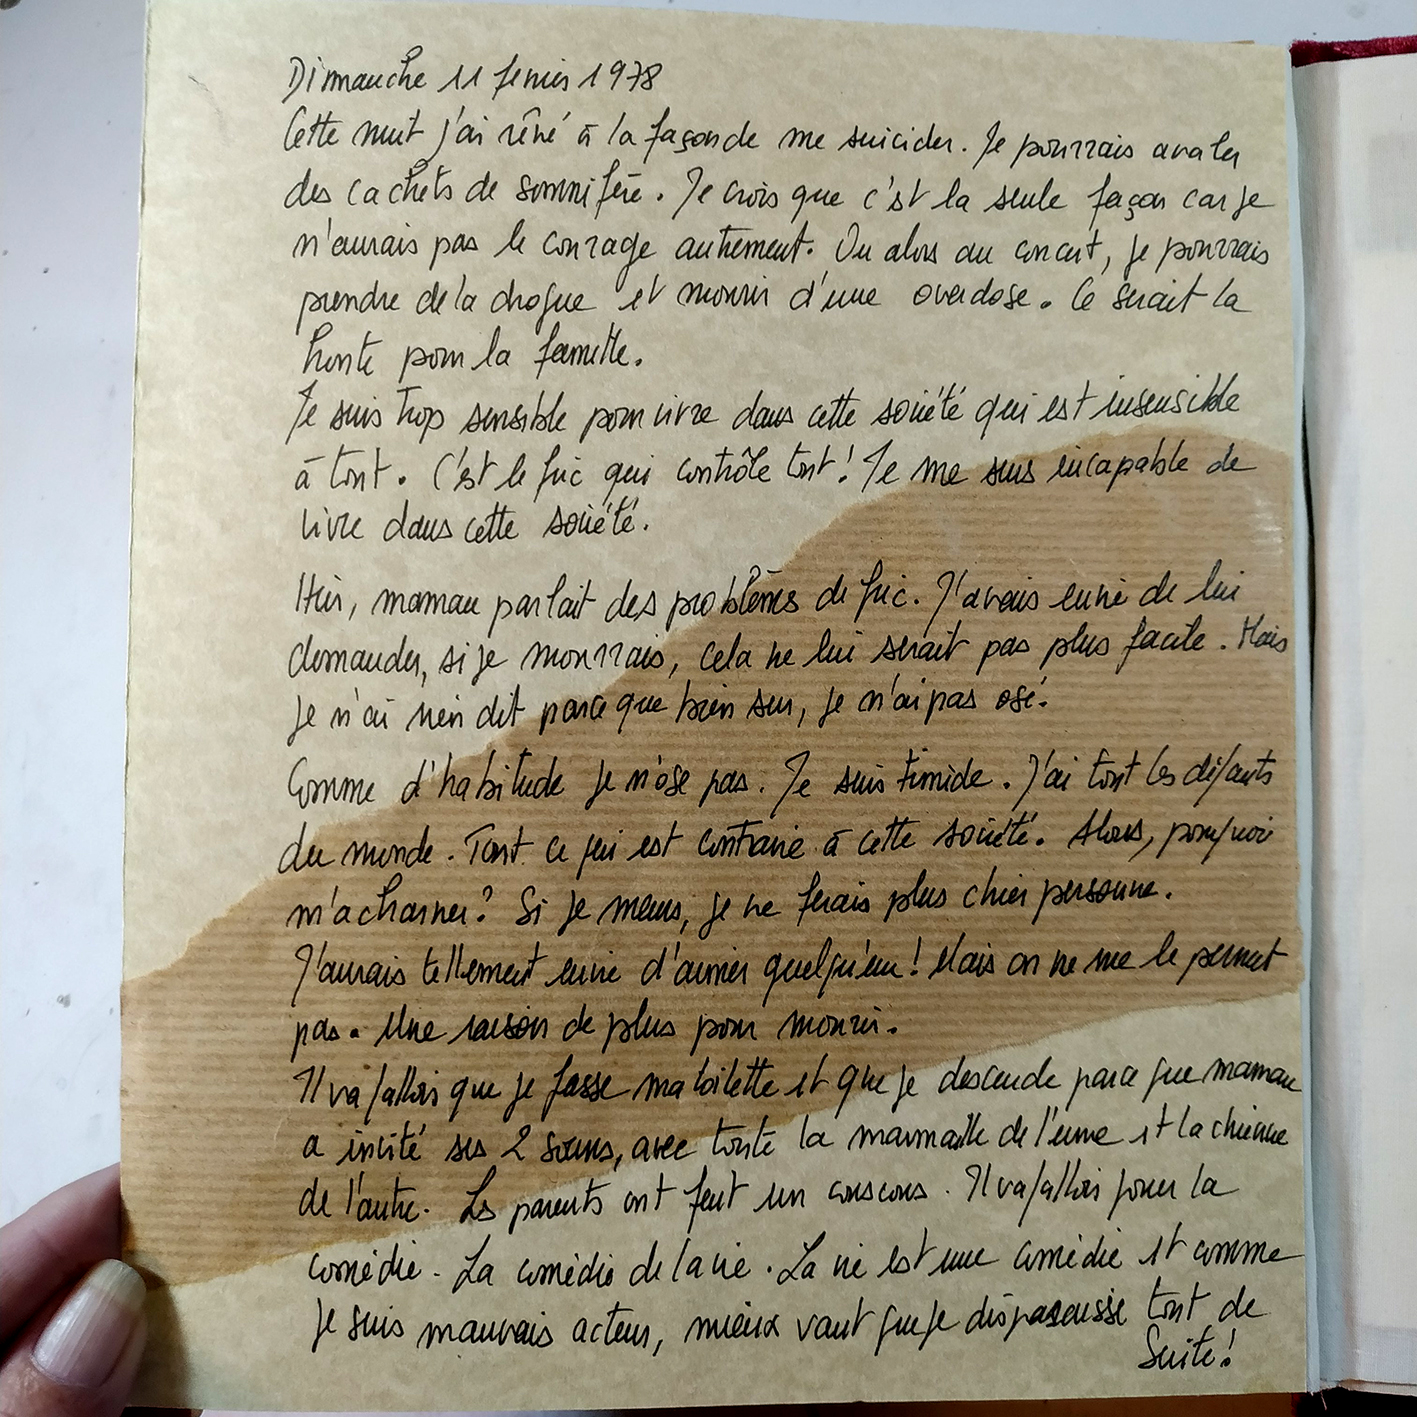 Dimanche 11 fevrier 1978
Cette nuit j'ai rêvé à la façon de me suicider. Je pourrais avaler
des cachets de somnifère. Je crois que c'est la seule façon car je
n'aurais pas le courage autrement. Ou alors au concert, je pourrais
prendre de la drogue et mourir d'une overdose. Ce serait la
honte pour la famille.
Je suis trop sensible pour vivre dans cette société qui est insensible
à tout. C'est le fric qui contrôle tout ! Je me sens incapable de
vivre dans cette société.
Hier, maman parlait des problèmes de fric. J'avais envie de lui
demander, si je mourrais, cela ne lui serait pas plus facile. Mais
je n'ai rien dit parce que bien sur, je n'ai pas osé.
Comme d'habitude je n'ose pas. Je suis timide. J'ai tout les défauts
du monde. Tout ce qui est contraire à cette société. Alors, pourquoi
m'acharner ? Si je meurs, je ne ferais plus chier personne.
J'aurais tellement envie d'aimer quelqu'un ! Mais on ne me le permet
pas. Une raison de plus pour mourir.
Il va falloir que je fasse ma toilette et que je descende parce que maman
a invité ses 2 soeurs, avec toute la marmaille de l'une et la chienne
de l'autre. Les parents ont fait un couscous. Il va falloir jouer la
comédie. La comédie de la vie. La vie est une comédie et comme
je suis mauvais acteur, mieux vaut que je disparaisse tout de
Suite !